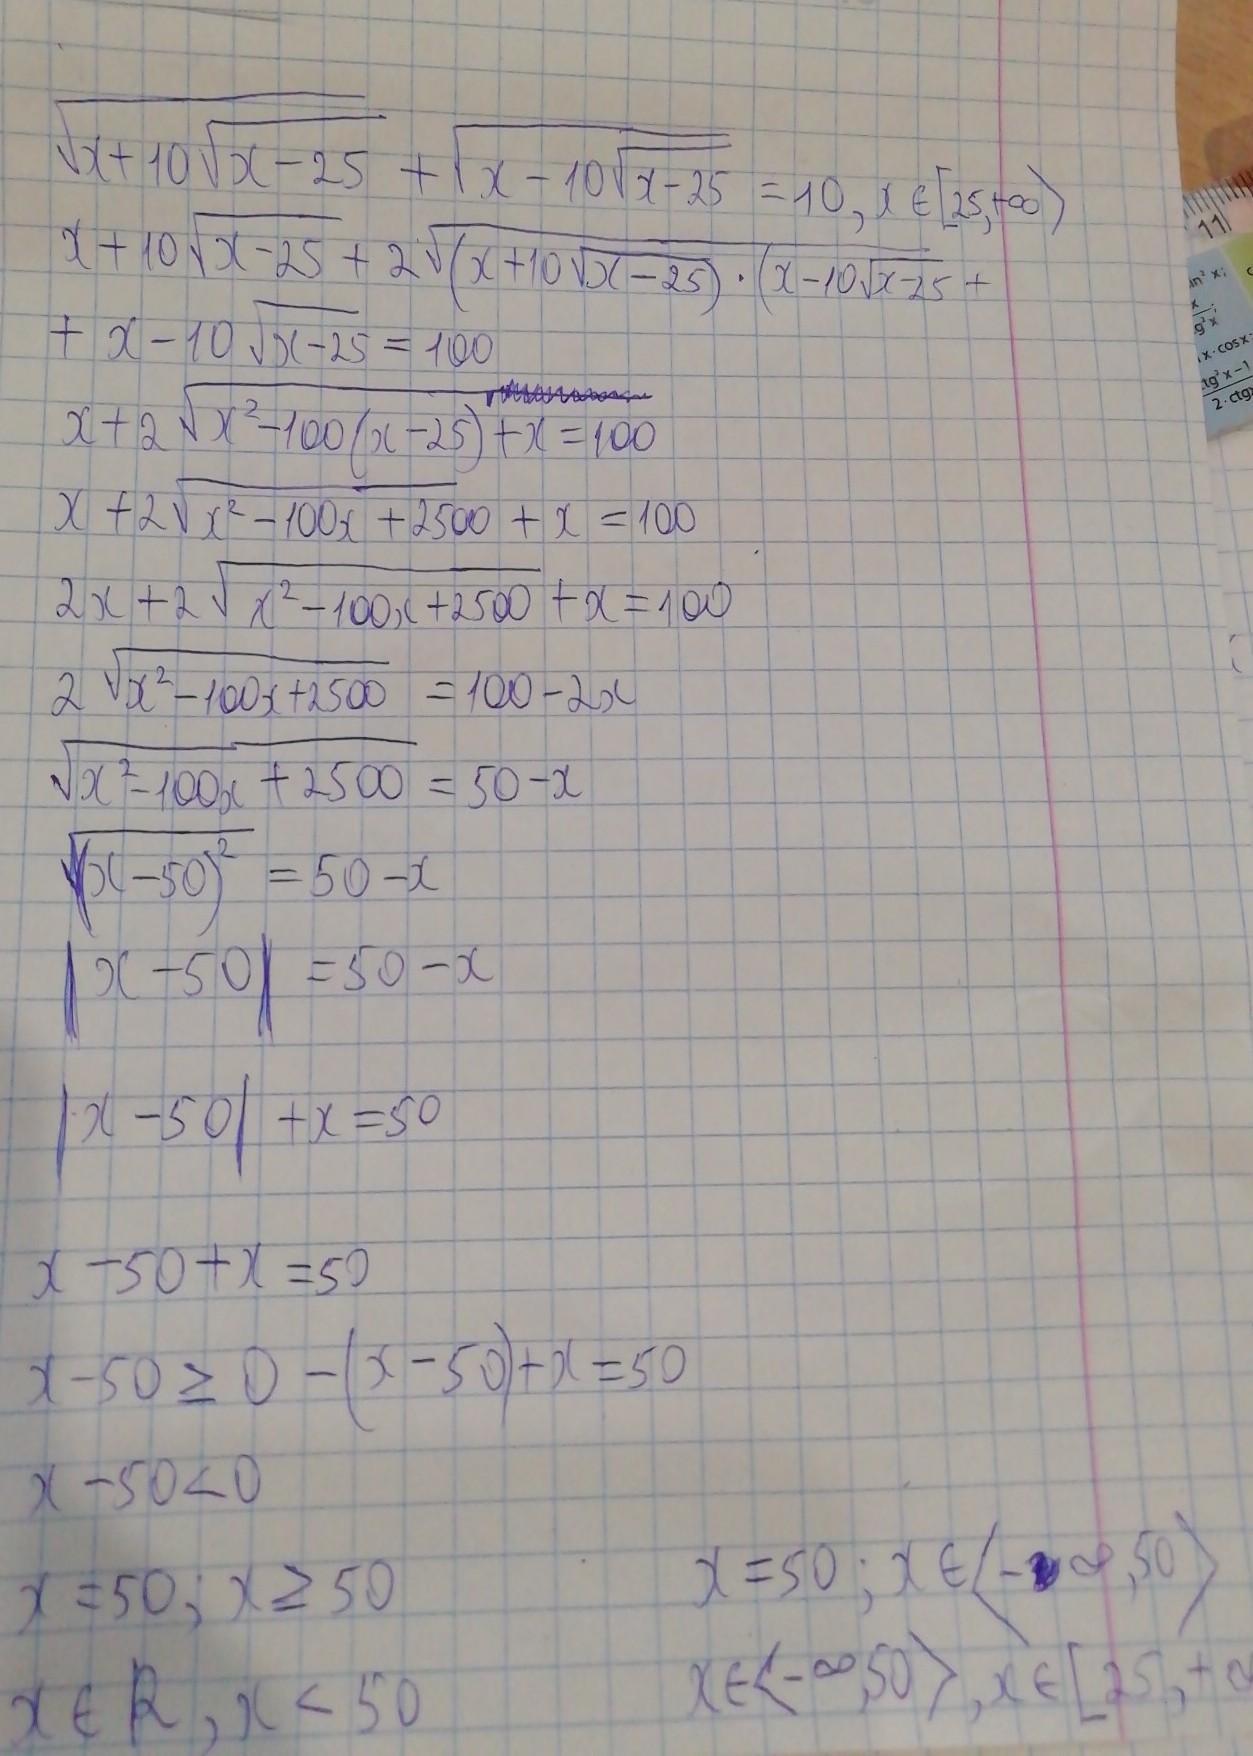 √(x+10√(x-25)) + √(x-10√(x-25)) = 10, x ∈ [25,+∞⟩
x+10√(x-25) + 2√((x+10√(x-25))·(x-10√(x-25) +
+ x-10√(x-25) = 100
x+2√(x²-100(x-25)) + x = 100
x+2√(x²-100x+2500) + x = 100
2x+2√(x²-100x+2500) + x = 100
2√(x²-100x+2500) = 100-2x
√(x²-100x+2500) = 50-x
√((x-50)²) = 50-x
|x-50| = 50-x
|x-50| + x = 50
x-50+x = 50
x-50 ≥ 0 -(x-50)+x = 50
x-50 < 0
x = 50; x ≥ 50 x = 50; x ∈ ⟨-∞,50⟩
x ∈ R, x < 50 x ∈ ⟨-∞,50⟩, x ∈ [25,+∞
11
in² x;
x
g² x;
x·cosx
tg² x-1
2·ctgx